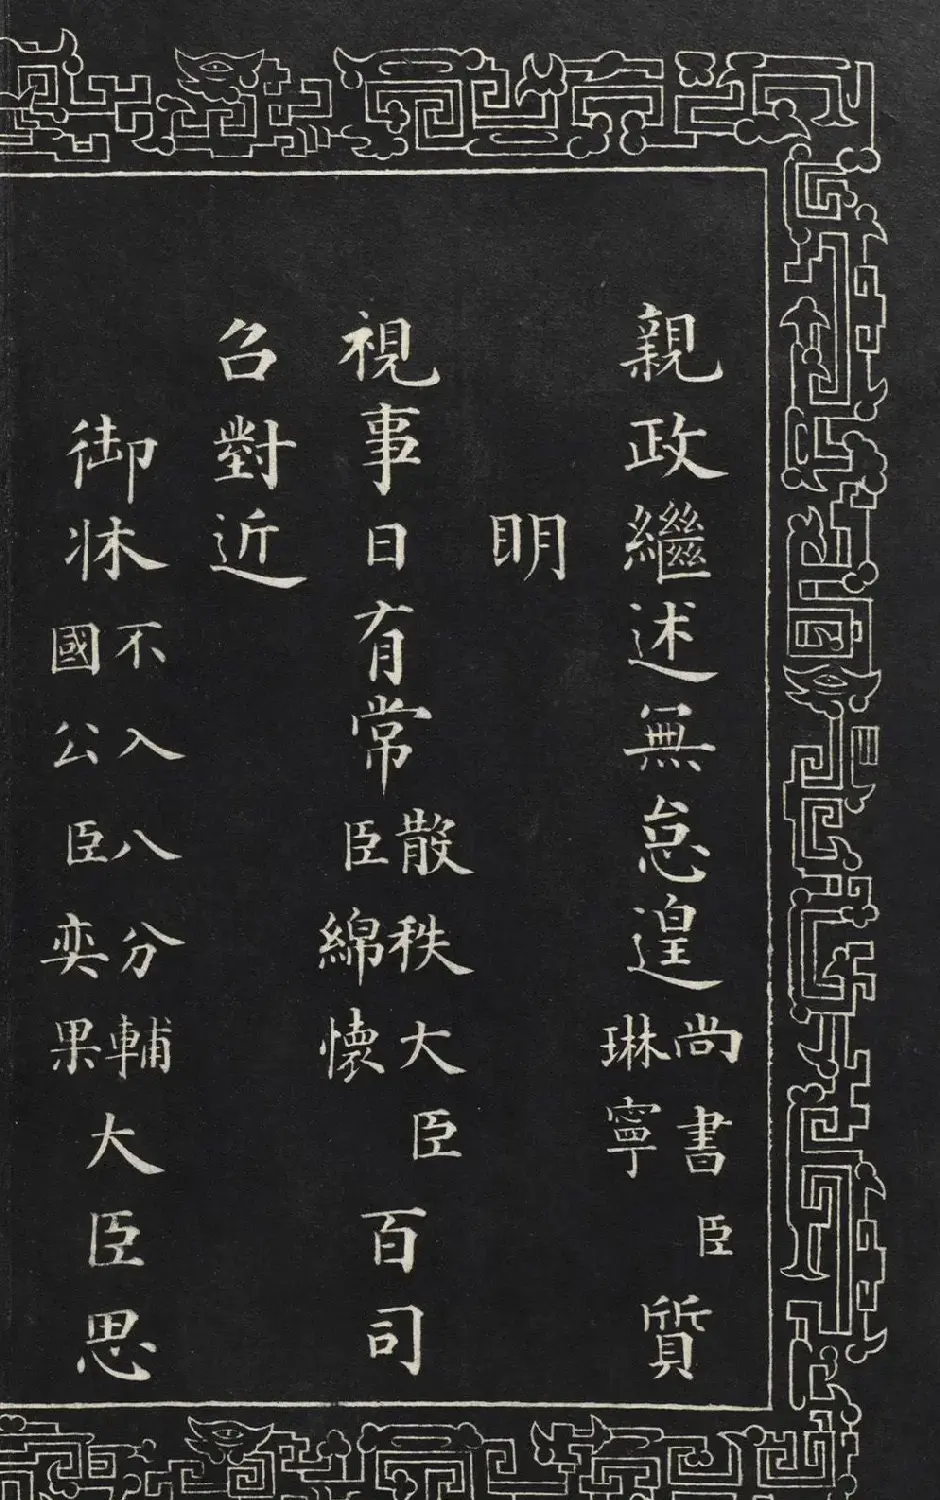 親政繼述無怠遑尚書臣琳寧質
明
視事日有常散秩大臣臣綿懷百司
召對近
御牀不入八分輔國公臣奕果大臣思